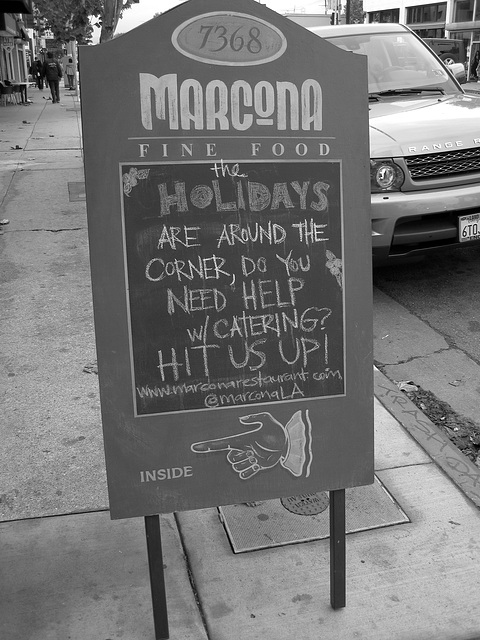 7368
MARCONA
FINE FOOD
the
HOLIDAYS
ARE AROUND THE
CORNER, DO YOU
NEED HELP
W/ CATERING?
HIT US UP!
www.marconarestaurant.com
@marconaLA
INSIDE
RANGE R
6TO